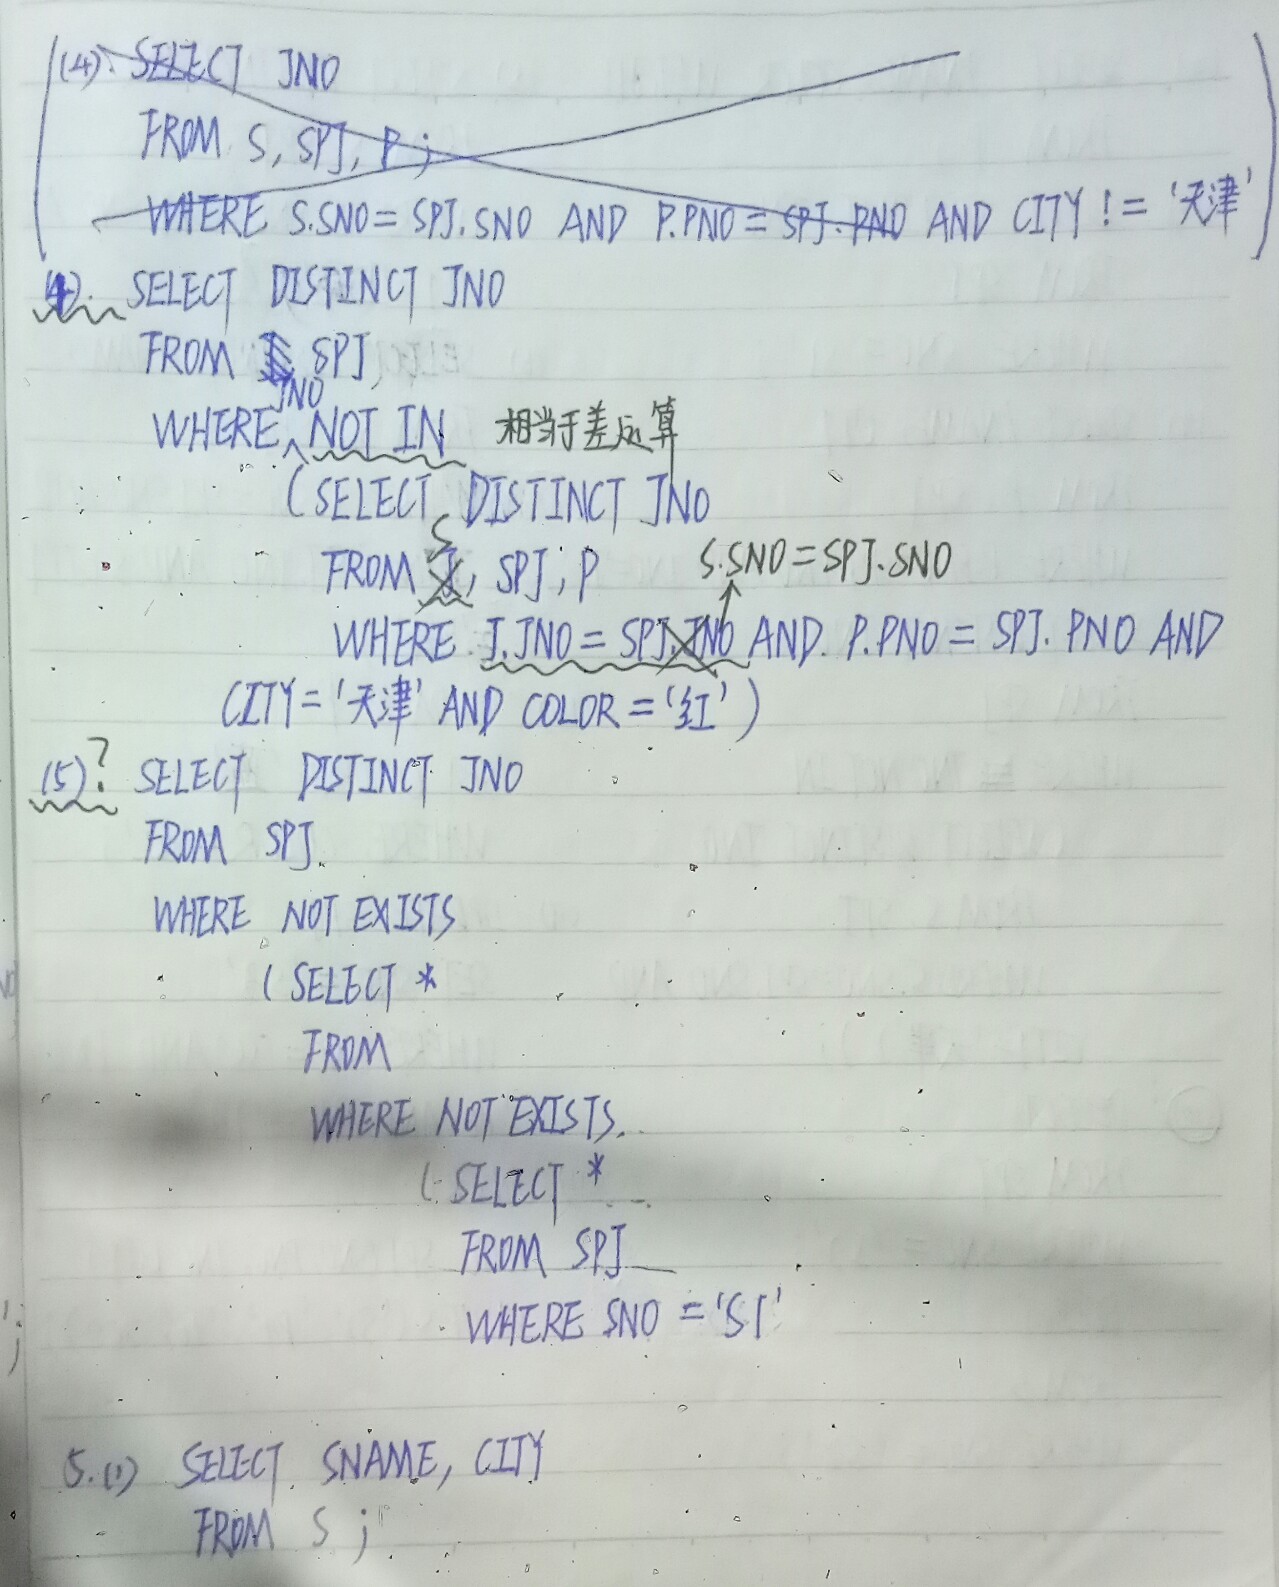 (4). SELECT JNO
FROM S, SPJ, P ;
WHERE S.SNO = SPJ.SNO AND P.PNO = SPJ.PNO AND CITY != '天津'
(4). SELECT DISTINCT JNO
FROM SPJ
JNO
WHERE NOT IN 相当于差运算
(SELECT DISTINCT JNO
S
FROM J, SPJ, P S.SNO = SPJ.SNO
WHERE J.JNO = SPJ.JNO AND. P.PNO = SPJ.PNO AND
CITY = '天津' AND COLOR = '红')
(5)? SELECT DISTINCT JNO
FROM SPJ.
WHERE NOT EXISTS
(SELECT *
FROM
WHERE NOT EXISTS.
(SELECT *
FROM SPJ
WHERE SNO = 'S1'
5.(1) SELECT SNAME, CITY
FROM S ;